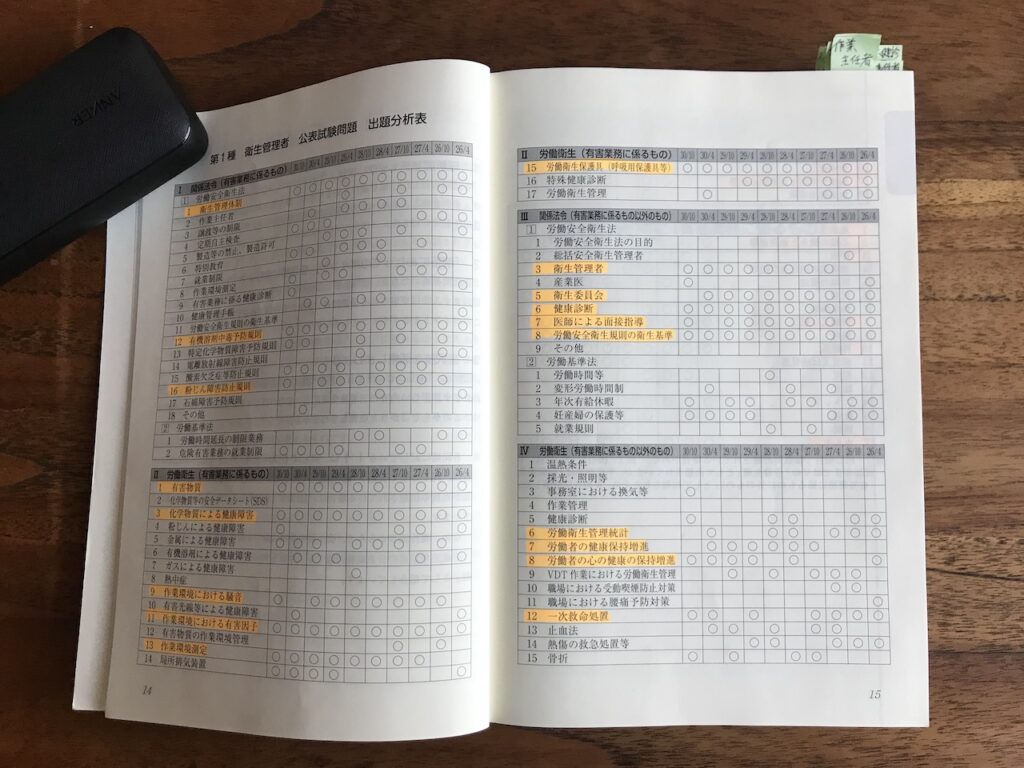 ANKER
作業
主任者
第1種 衛生管理者 公表試験問題 出題分析表
I 関係法令(有害業務に係るもの) 30/10 30/4 29/10 29/4 28/10 28/4 27/10 27/4 26/10 26/4
1 労働安全衛生法
1 衛生管理体制
2 作業主任者
3 譲渡等の制限
4 定期自主検査
5 製造等の禁止、製造許可
6 特別教育
7 就業制限
8 作業環境測定
9 有害業務に係る健康診断
10 健康管理手帳
11 労働安全衛生規則の衛生基準
12 有機溶剤中毒予防規則
13 特定化学物質障害予防規則
14 電離放射線障害防止規則
15 酸素欠乏症等防止規則
16 粉じん障害防止規則
17 石綿障害予防規則
18 その他
2 労働基準法
1 労働時間延長の制限業務
2 危険有害業務の就業制限
II 労働衛生(有害業務に係るもの) 30/10 30/4 29/10 29/4 28/10 28/4 27/10 27/4 26/10 26/4
1 有害物質
2 化学物質等の安全データシート(SDS)
3 化学物質による健康障害
4 粉じんによる健康障害
5 金属による健康障害
6 有機溶剤による健康障害
7 ガスによる健康障害
8 熱中症
9 作業環境における騒音
10 有害光線等による健康障害
11 作業環境における有害因子
12 有害物質の作業環境管理
13 作業環境測定
14 局所排気装置
14
II 労働衛生(有害業務に係るもの) 30/10 30/4 29/10 29/4 28/10 28/4 27/10 27/4 26/10 26/4
15 労働衛生保護具(呼吸用保護具等)
16 特殊健康診断
17 労働衛生管理
III 関係法令(有害業務に係るもの以外のもの) 30/10 30/4 29/10 29/4 28/10 28/4 27/10 27/4 26/10 26/4
1 労働安全衛生法
1 労働安全衛生法の目的
2 総括安全衛生管理者
3 衛生管理者
4 産業医
5 衛生委員会
6 健康診断
7 医師による面接指導
8 労働安全衛生規則の衛生基準
9 その他
2 労働基準法
1 労働時間等
2 変形労働時間制
3 年次有給休暇
4 妊産婦の保護等
5 就業規則
IV 労働衛生(有害業務に係るもの以外のもの) 30/10 30/4 29/10 29/4 28/10 28/4 27/10 27/4 26/10 26/4
1 温熱条件
2 採光・照明等
3 事務室における換気等
4 作業管理
5 健康診断
6 労働衛生管理統計
7 労働者の健康保持増進
8 労働者の心の健康の保持増進
9 VDT作業における労働衛生管理
10 職場における受動喫煙防止対策
11 職場における腰痛予防対策
12 一次救命処置
13 止血法
14 熱傷の救急処置等
15 骨折
15